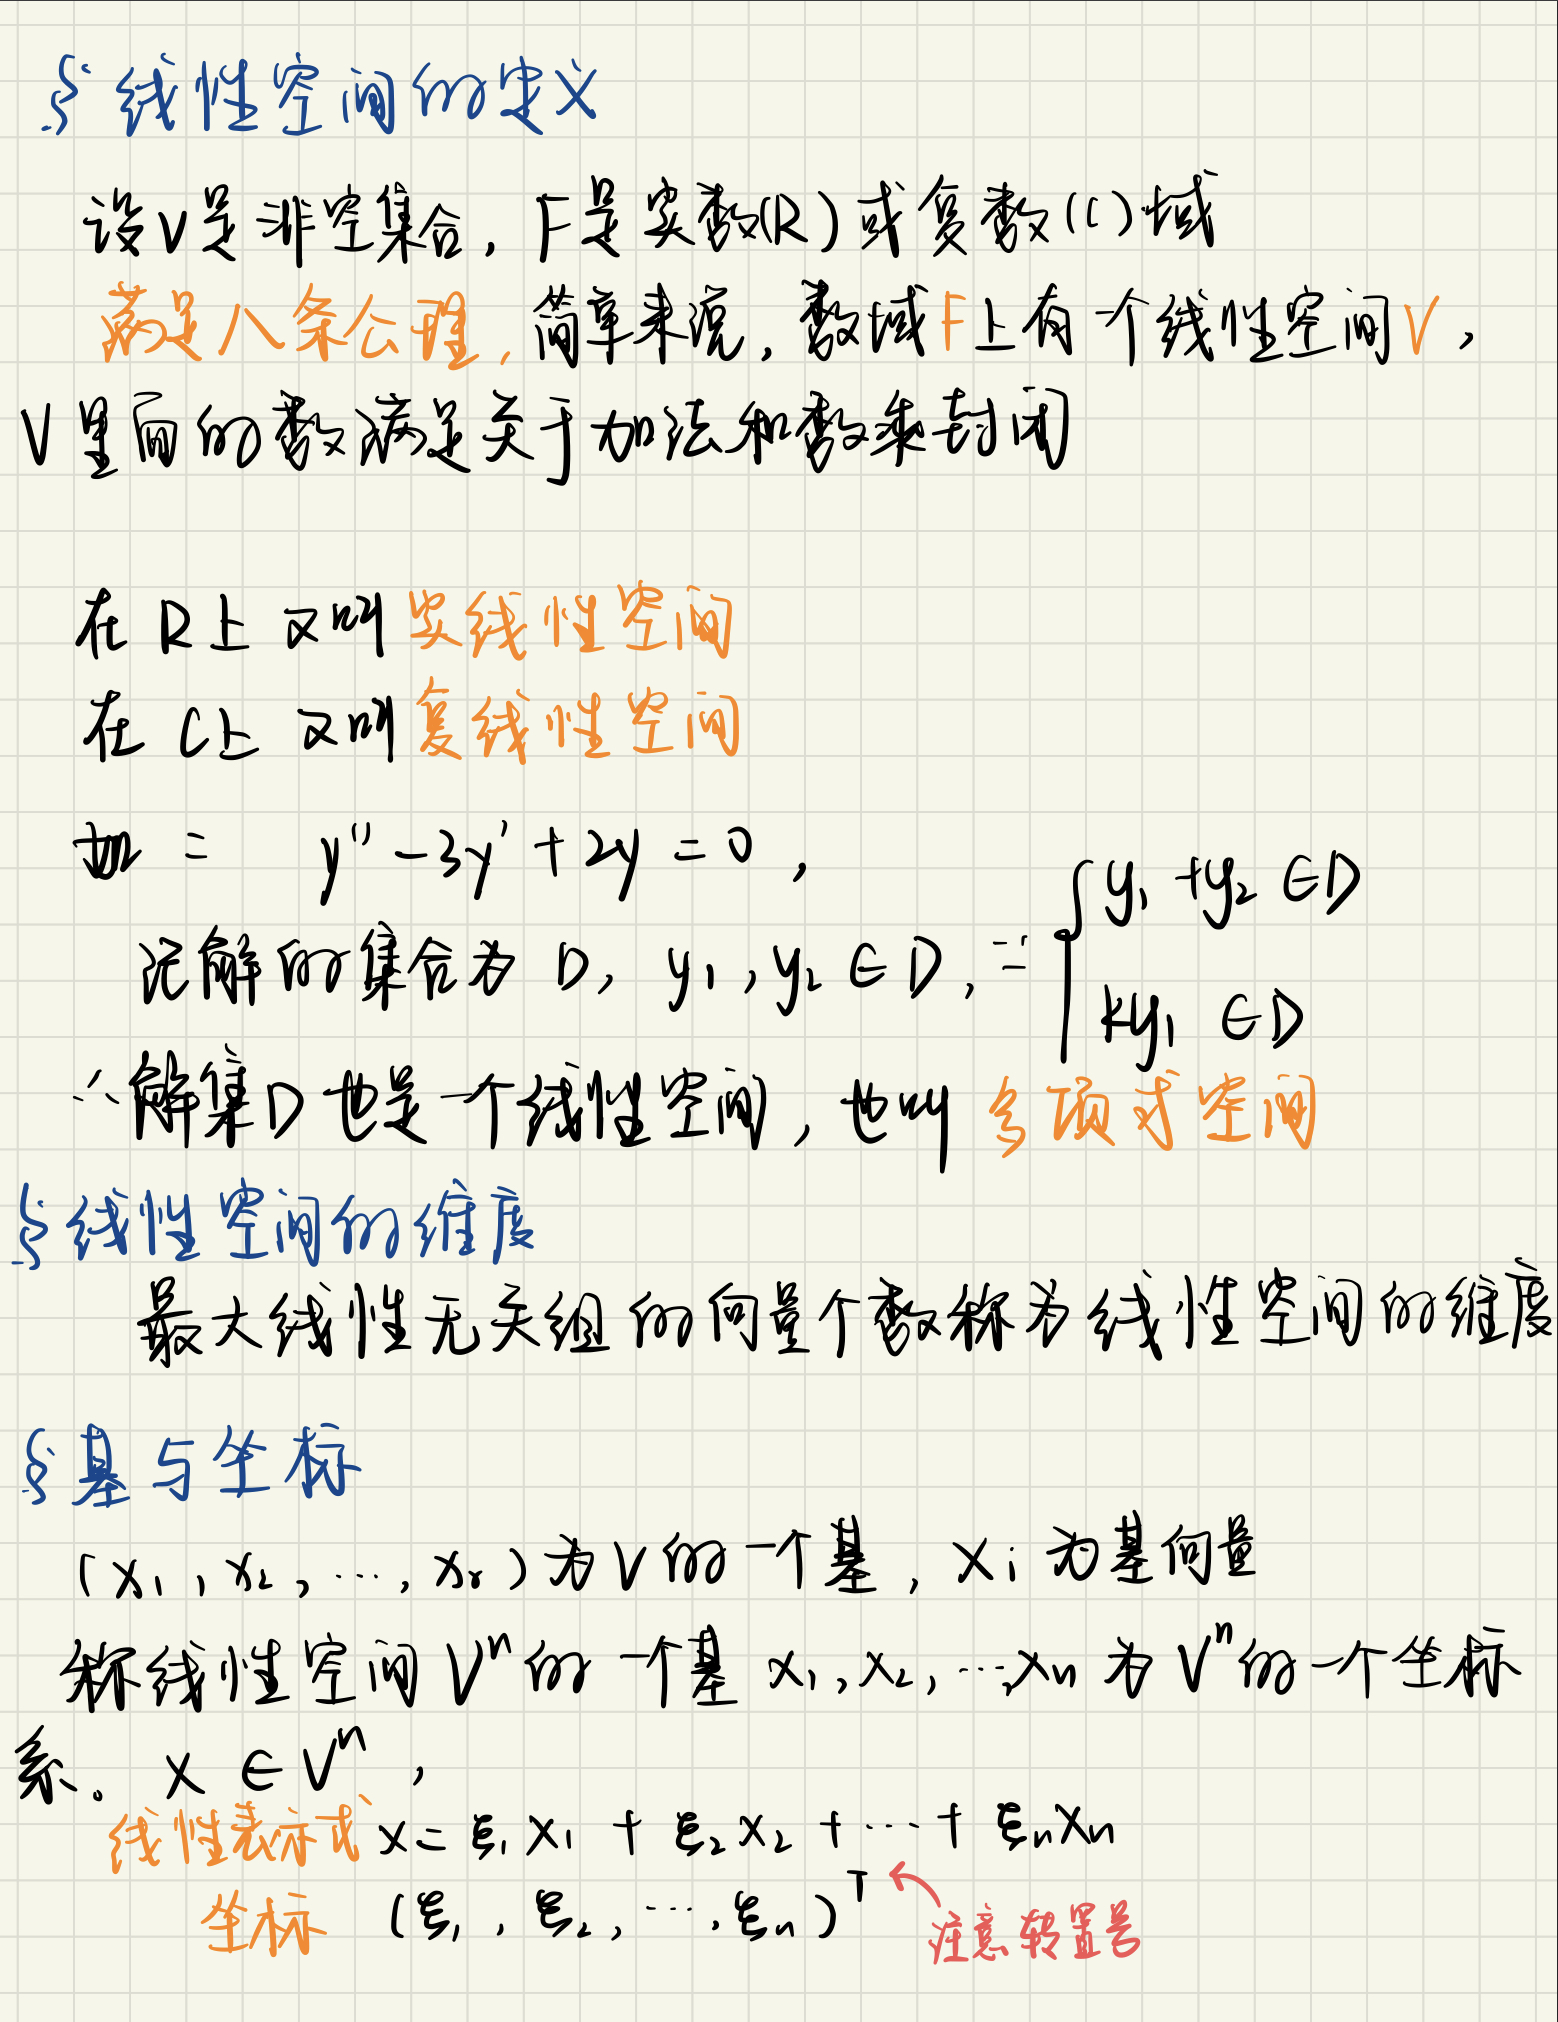 § 线性空间的定义
设V是非空集合, F是实数(R)或复数(C)域
满足八条公理, 简单来说, 数域F上有一个线性空间V,
V里面的数满足关于加法和数乘封闭
在R上 又叫实线性空间
在C上 又叫复线性空间
如: y''-3y'+2y=0,
记解的集合为 D, y₁, y₂∈D, ∵ { y₁+y₂∈D
ky₁∈D
∴解集D也是一个线性空间, 也叫多项式空间
§线性空间的维度
最大线性无关组的向量个数称为线性空间的维度
§基与坐标
(x₁, x₂, ..., xᵣ)为V的一个基, xᵢ为基向量
称线性空间Vⁿ的一个基 x₁, x₂, ..., xₙ 为Vⁿ的一个坐标
系。 x∈Vⁿ,
线性表示式 x=ξ₁x₁+ξ₂x₂+...+ξₙxₙ
坐标 (ξ₁, ξ₂, ..., ξₙ)ᵀ
注意转置号